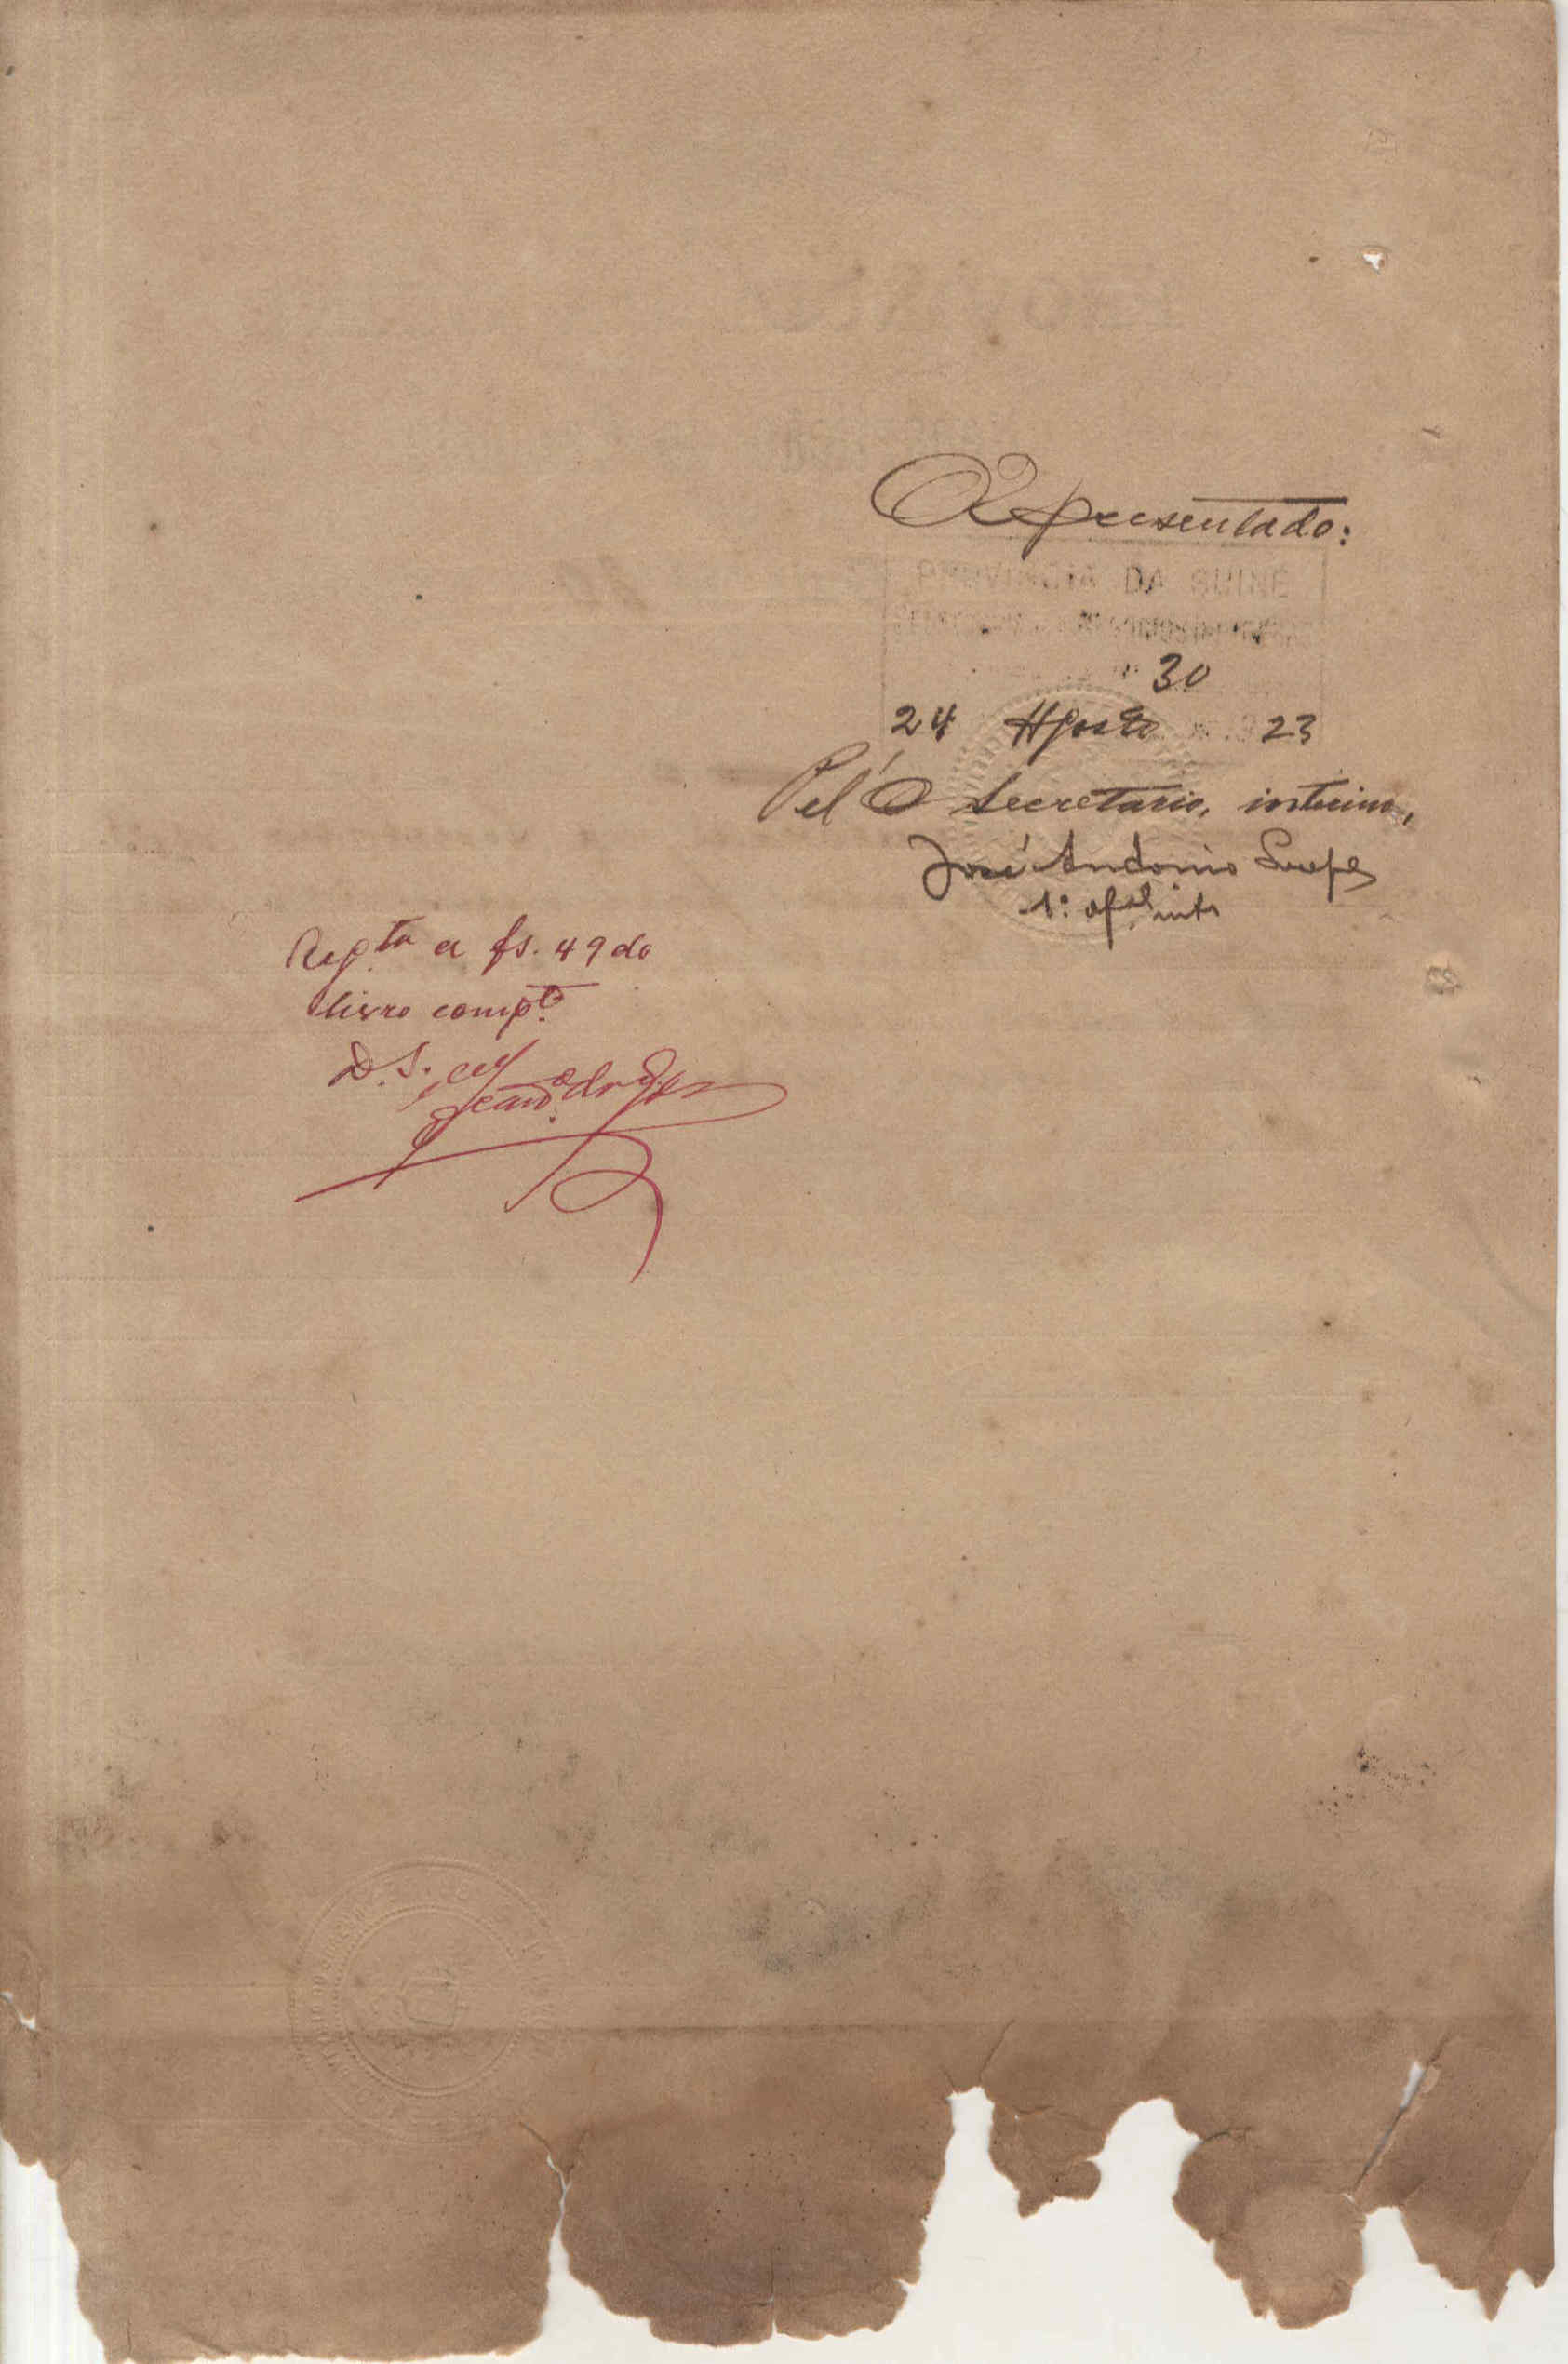 Apresentado:
PROVINCIA DA GUINÉ
30
24 Agosto 23
Pel'O Secretario, interino,
José Antonio
1.º of.al int.º
Reg.ta a fs. 49 do
livro comp.te
D. S.